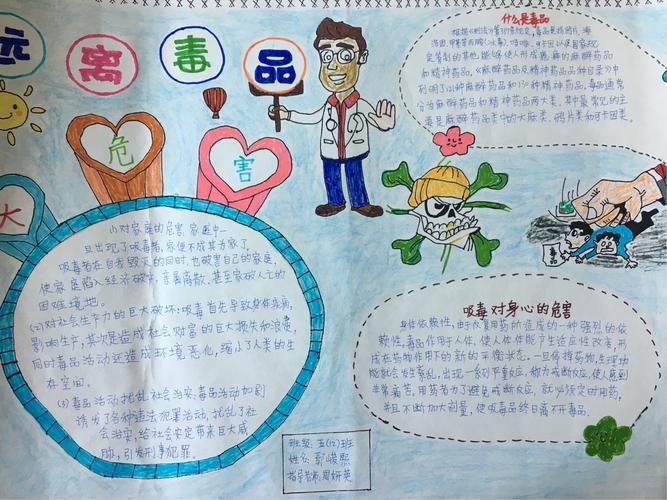 远离毒品
大 危 害
什么是毒品
根据《刑法》第357条规定,毒品是指鸦片、海
洛因、甲基苯丙胺(冰毒)、吗啡、
定管制的其他能够使人形成瘾癖的麻醉药品
和精神药品。《麻醉药品及精神药品品种目录》中
列明了121种麻醉药品和130种精神药品。毒品通常
分为麻醉药品和精神药品两大类。其中最常见的主
要是麻醉药品类中的大麻类、鸦片类和可卡因类。
(1)对家庭的危害,家庭中一
旦出现了吸毒者,家便不成其为家了,
吸毒者在自我毁灭的同时,也破害自己的家庭,
使家庭陷入经济破产、亲属离散、甚至家破人亡的
困难境地。
(2)对社会生产力的巨大破坏:吸毒首先导致身体疾病,
影响生产,其次是造成社会财富的巨大损失和浪费,
同时毒品活动还造成环境恶化,缩小了人类的生
存空间。
(3)毒品活动扰乱社会治安:毒品活动加剧
诱发了各种违法犯罪活动,扰乱了社
会治安,给社会安定带来巨大威
胁,引发刑事犯罪。
毒品
吸毒对身心的危害
身体依赖性,由于反复用药所造成的一种强烈的依
赖性,毒品作用于人体,使人体体能产生适应性改变,形
成在药物作用下的新的平衡状态。一旦停掉药物,生理功
能就会发生紊乱,出现一系列严重反应,称为戒断反应,使人感到
非常痛苦。用药者为了避免戒断反应,就必须定时用药,
并且不断加大剂量,使吸毒品终日离不开毒品。
班级:五(12)班
姓名:
指导老师:周妍英